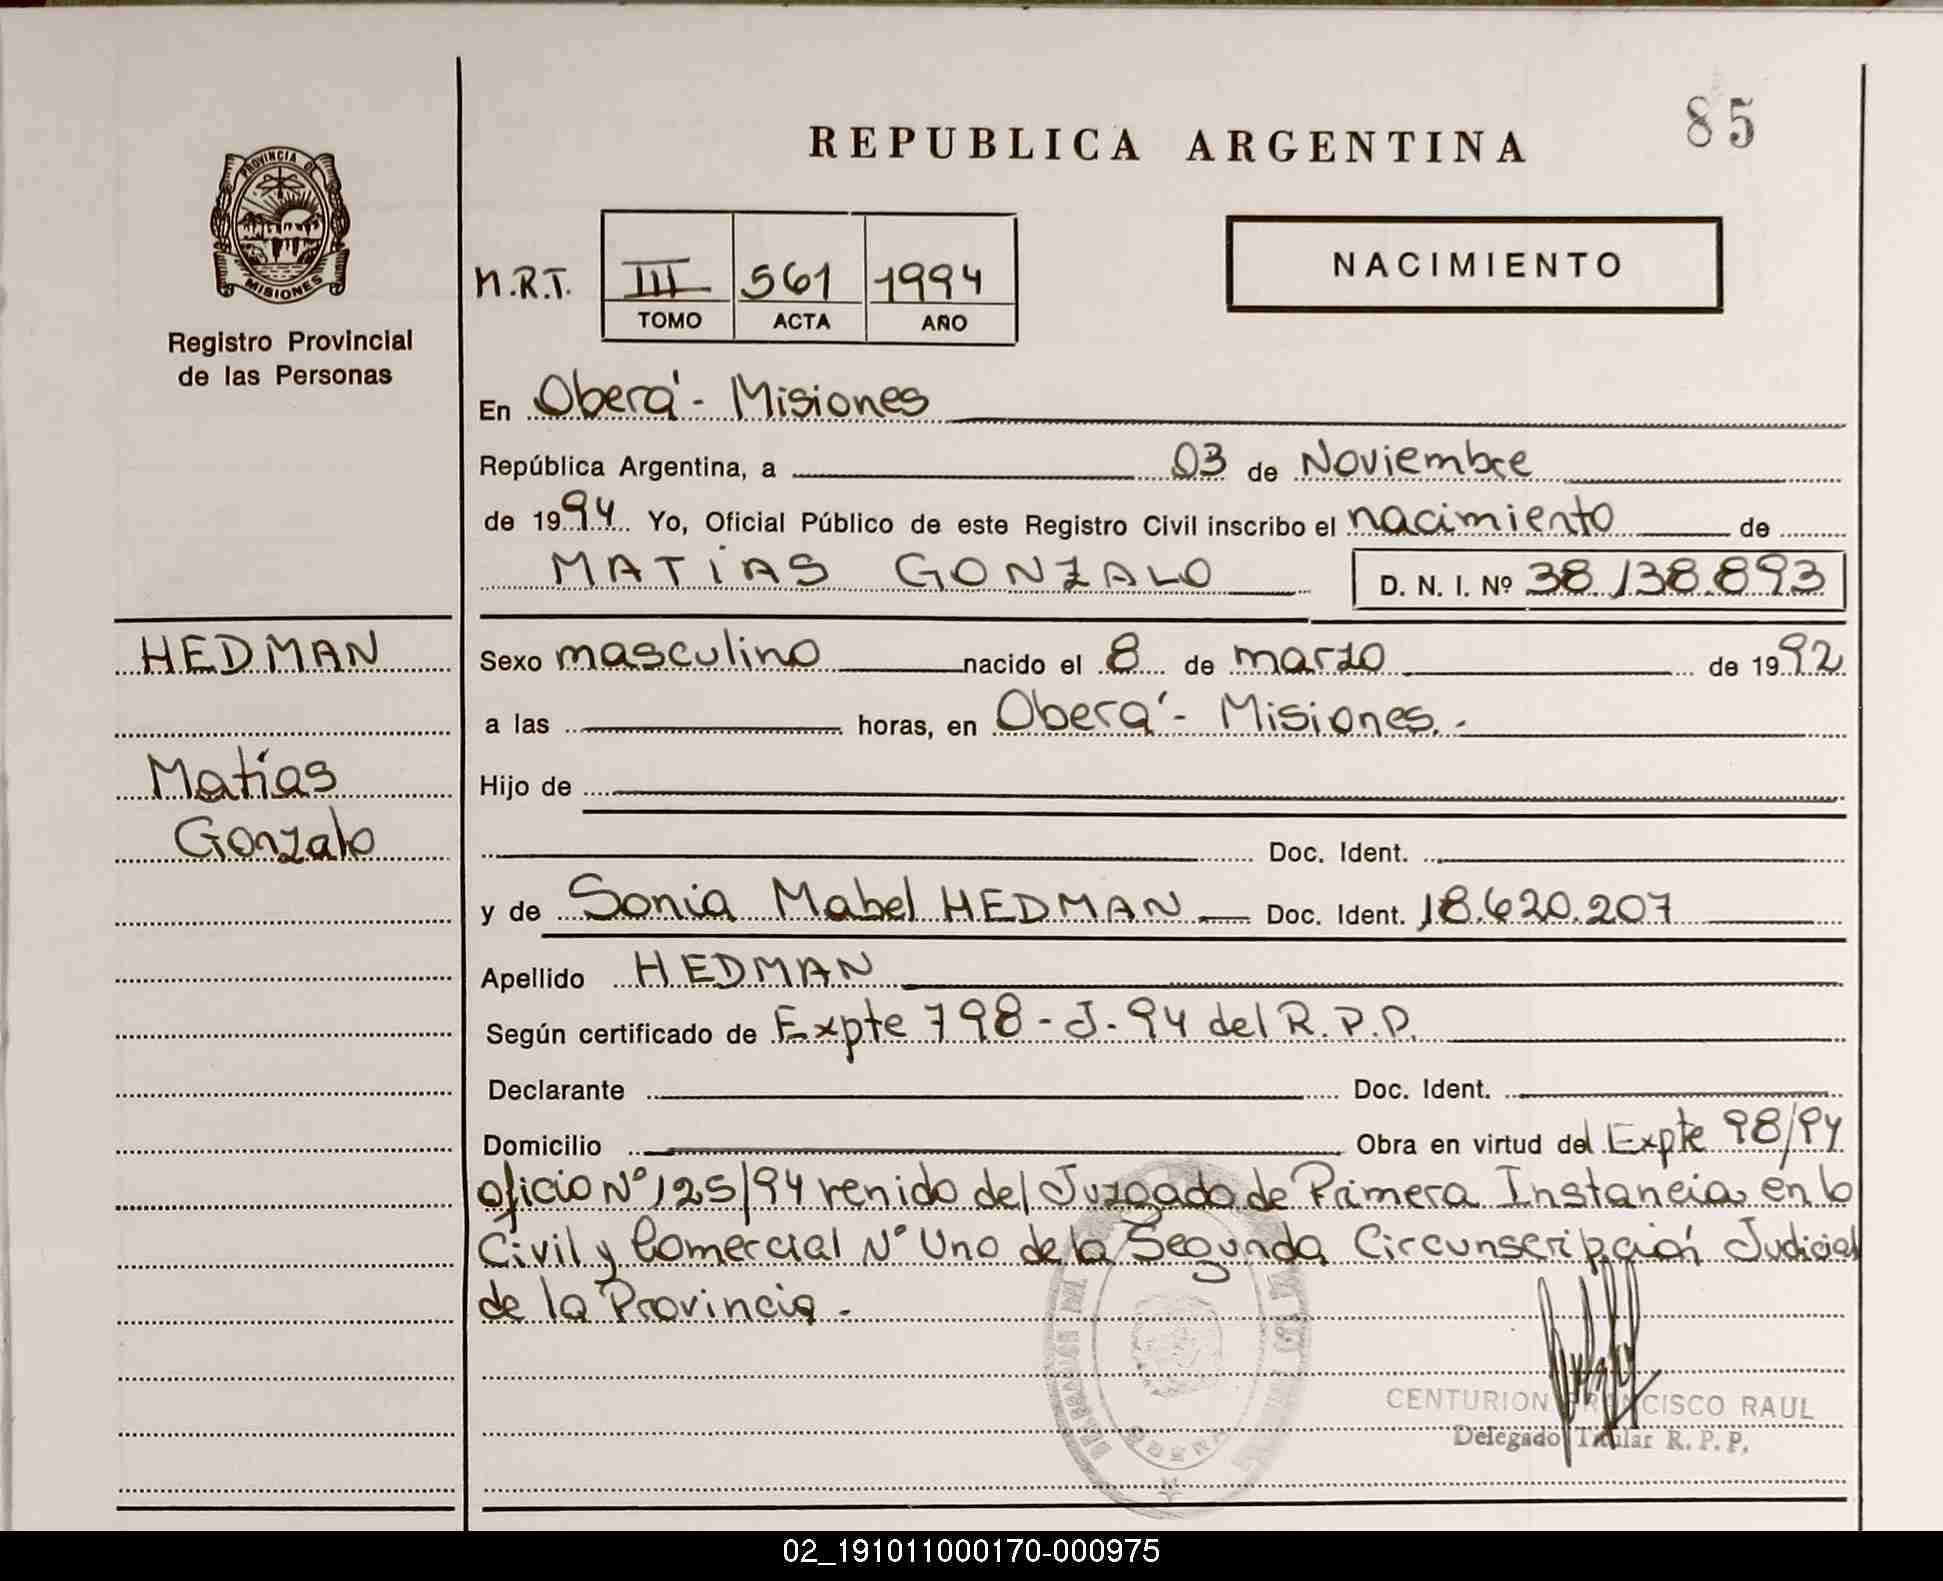 85
REPUBLICA ARGENTINA
PROVINCIA DE
MISIONES
Registro Provincial
de las Personas
N.R.T. III 561 1994
TOMO ACTA AÑO
NACIMIENTO
En Oberá - Misiones
República Argentina, a 03 de Noviembre
de 1994 Yo, Oficial Público de este Registro Civil inscribo el nacimiento de
MATIAS GONZALO D. N. I. Nº 38.138.893
HEDMAN
Matías
Gonzalo
Sexo masculino nacido el 8 de marzo de 1992
a las horas, en Oberá - Misiones.-
Hijo de
Doc. Ident.
y de Sonia Mabel HEDMAN Doc. Ident. 18.620.207
Apellido HEDMAN
Según certificado de Expte 798 - J - 94 del R.P.P.
Declarante Doc. Ident.
Domicilio Obra en virtud del Expte 98/94
oficio Nº 125/94 venido del Juzgado de Primera Instancia en lo
Civil y Comercial Nº Uno de la Segunda Circunscripción Judicial
de la Provincia.-
CENTURION FRANCISCO RAUL
Delegado Titular R. P. P.
02_191011000170-000975